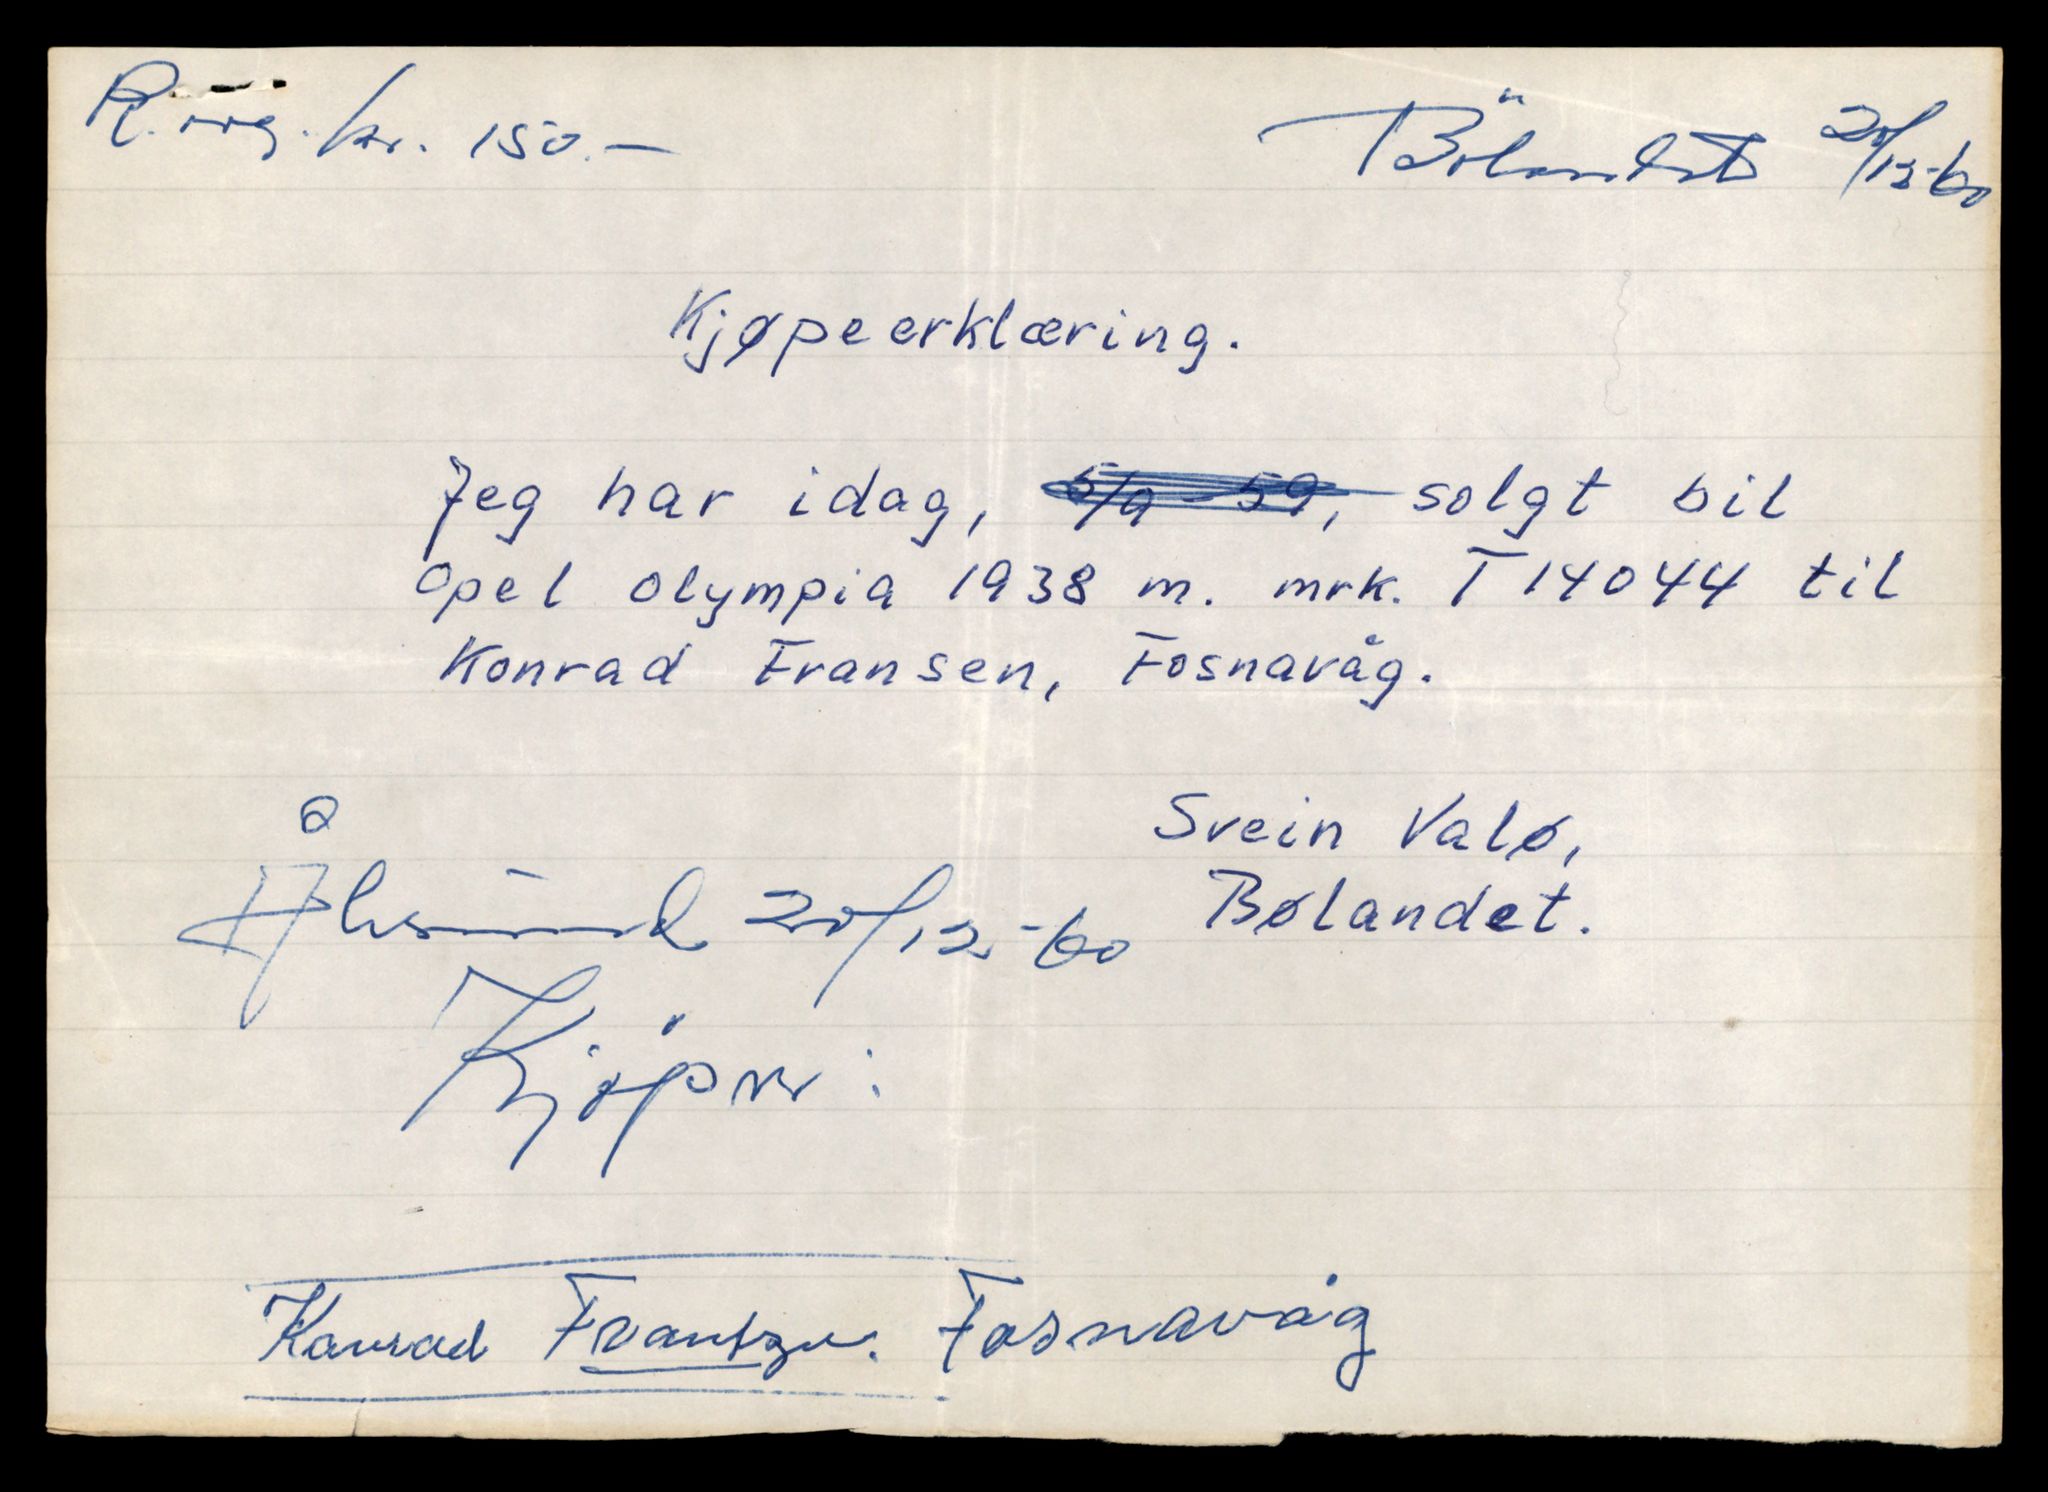 kr. 150.-
Bölandet 20/12-60
Kjøpeerklæring.
Jeg har idag, 5/9-59, solgt bil
Opel Olympia 1938 m. mrk. T 14044 til
Konrad Fransen, Fosnavåg.
Svein Valø,
Bølandet.
Ålesund 20/12-60
Kjöper:
Konrad Frantzen. Fosnavåg